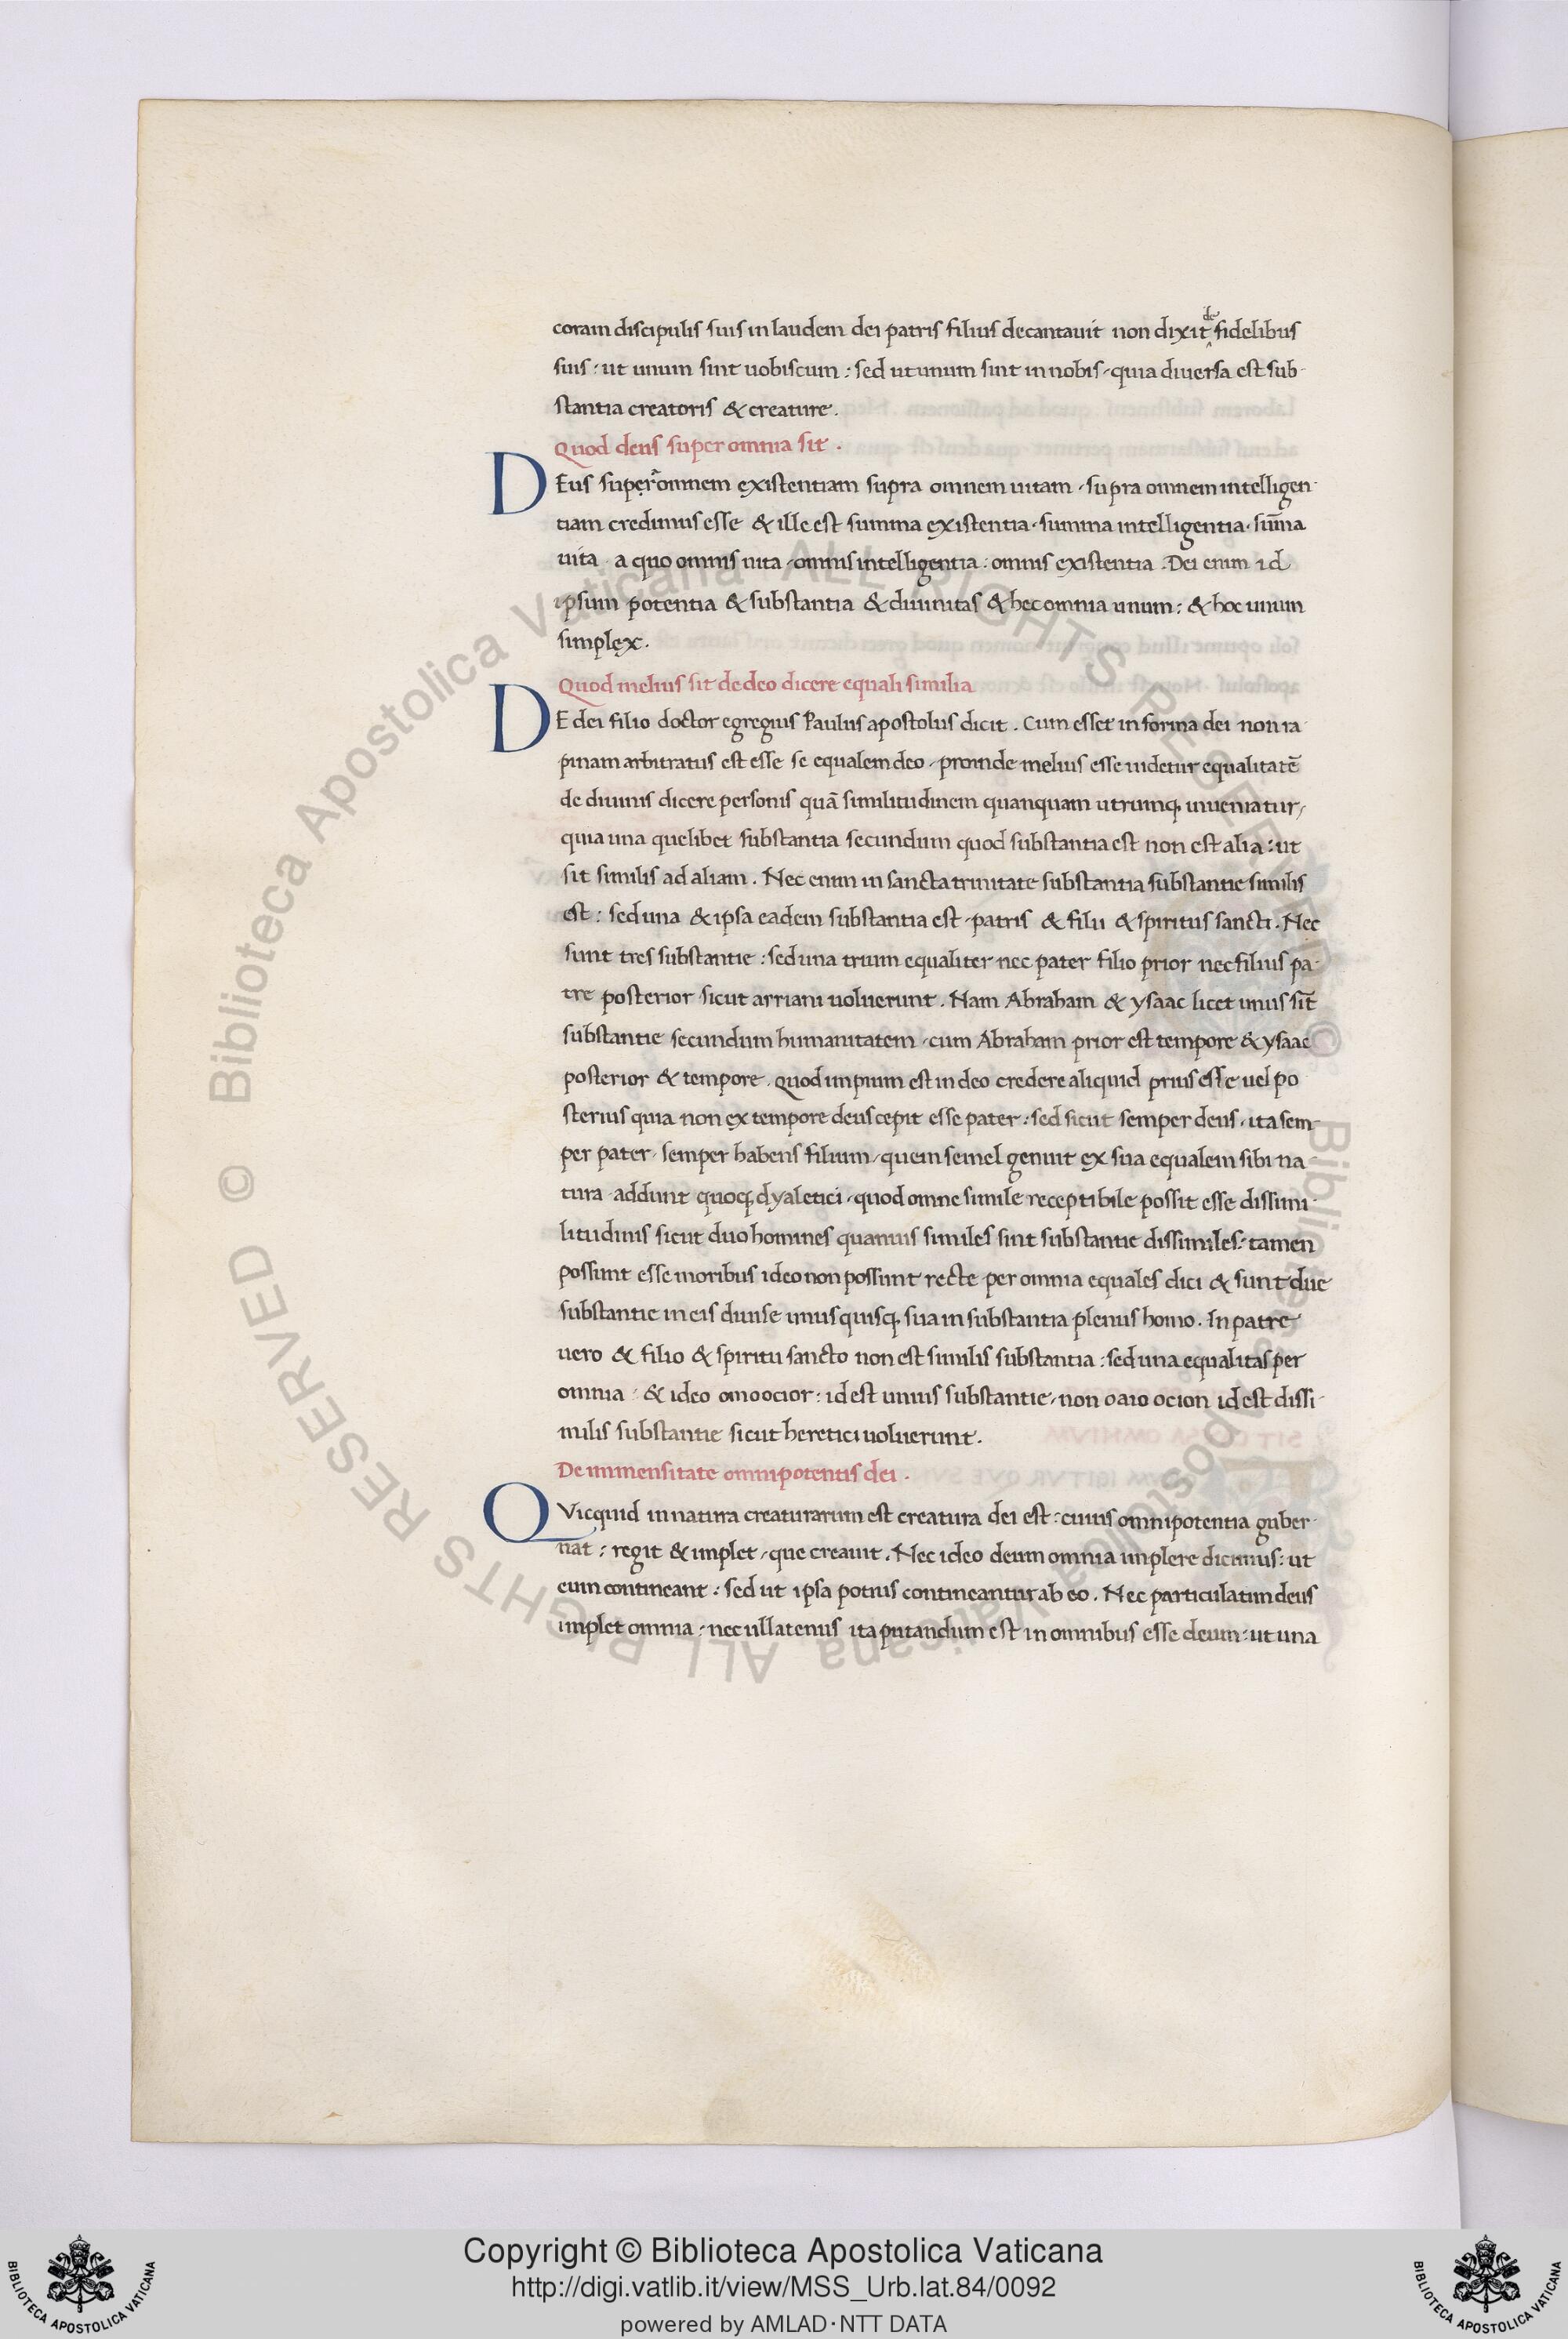 coram discipulis suis in laudem dei patris filius decantauit non dixit de fidelibus
suis: ut unum sint uobiscum: sed ut unum sint in nobis, quia diuersa est sub-
stantia creatoris & creature.
Quod deus super omnia sit.
DEus super omnem existentiam supra omnem uitam, supra omnem intelligen-
tiam credimus esse & ille est summa existentia, summa intelligentia, sum̄a
uita, a quo omnis uita, omnis intelligentia: omnis existentia. Dei enim id
ipsum potentia & substantia & diuinitas & hec omnia unum: & hoc unum
simplex.
Quod melius sit de deo dicere equali similia
DE dei filio doctor egregius Paulus apostolus dicit. Cum esset in forma dei non ra-
pinam arbitratus est esse se equalem deo, proinde melius esse uidetur equalitatē
de diuinis dicere personis quā similitudinem quanquam utrumq, inueniatur,
quia una quelibet substantia secundum quod substantia est non est alia: ut
sit similis ad aliam. Nec enim in sancta trinitate substantia substantie similis
est: sed una & ipsa eadem substantia est, patris & filii & spiritus sancti. Nec
sunt tres substantie: sed una trium equaliter nec pater filio prior nec filius pa-
tre posterior sicut arriani uoluerunt. Nam Abraham & ysaac licet unius sīt
substantie secundum humanitatem, cum Abraham prior est tempore & ysaac
posterior & tempore. quod impium est in deo credere aliquid prius esse uel po
sterius quia non ex tempore deus cepit esse pater: sed sicut semper deus, ita sem-
per pater, semper habens filium, quem semel genuit ex sua equalem sibi na-
tura addunt quoq, dyaletici, quod omne simile receptibile possit esse dissimi-
litudinis sicut duo homines quamuis similes sint substantie dissimiles: tamen
possunt esse moribus ideo non possunt recte per omnia equales dici & sunt due
substantie in eis diuise unusquisq, sua in substantia plenus homo. In patre
uero & filio & spiritu sancto non est similis substantia: sed una equalitas per
omnia: & ideo omoocior: id est unius substantie, non oaio ocion id est dissi-
milis substantie sicut heretici uoluerunt.
De immensitate omnipotentis dei.
QVicquid in natura creaturarum est creatura dei est: cuius omnipotentia guber-
nat: regit & implet, que creauit. Nec ideo deum omnia implere dicimus: ut
eum contineant: sed ut ipsa potius contineantur ab eo. Nec particulatim deus
implet omnia, nec ullatenus ita putandum est in omnibus esse deum: ut una
© Biblioteca Apostolica Vaticana ALL RIGHTS RESERVED © Biblioteca Apostolica Vaticana ALL RIGHTS RESERVED
Copyright © Biblioteca Apostolica Vaticana
http://digi.vatlib.it/view/MSS_Urb.lat.84/0092
powered by AMLAD·NTT DATA
BIBLIOTECA APOSTOLICA VATICANA
BIBLIOTECA APOSTOLICA VATICANA